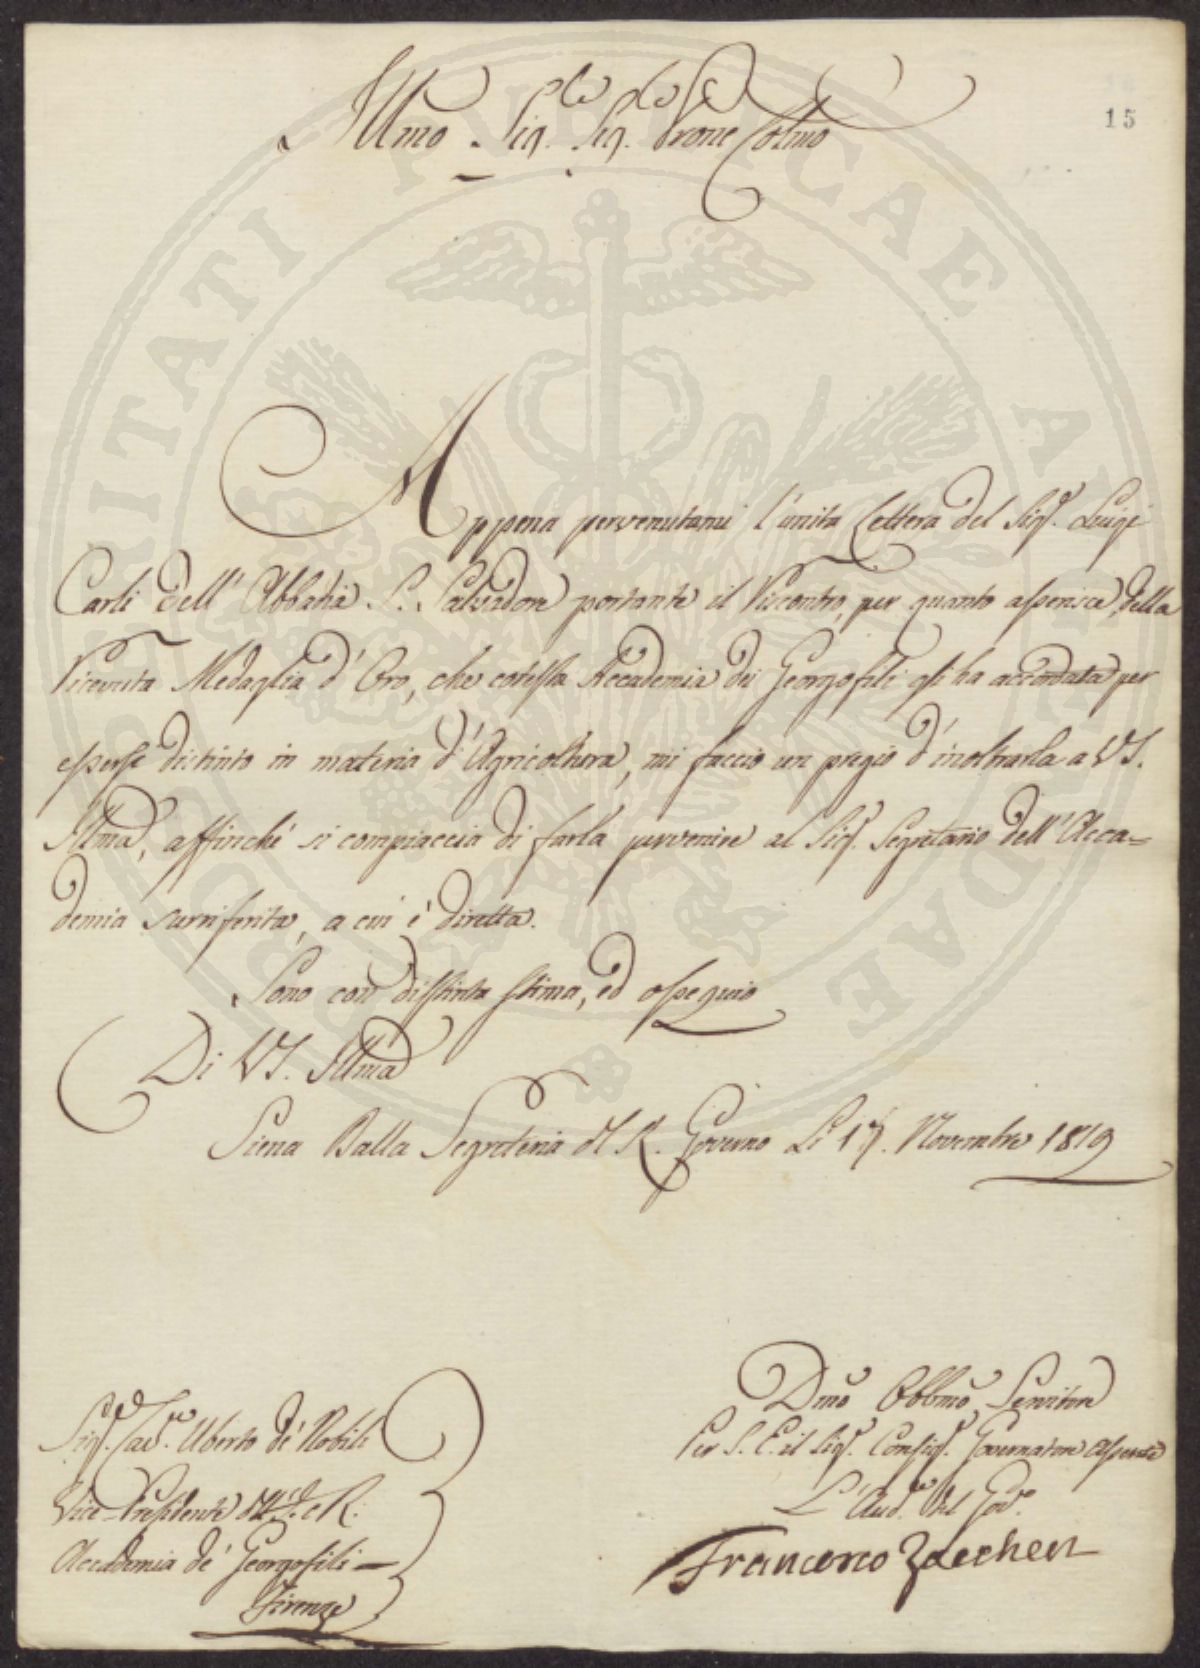 15
Illmo Sig.re Sig.re Prone Colmo
Appena pervenutami l'unita Lettera del Sig.r Luigi
Carli dell'Abbadia S. Salvadore portante il Riscontro, per quanto asserisce, della
Ricevuta Medaglia d'Oro, che cotesta Accademia dei Georgofili gli ha accordata per
essersi distinto in materia d'Agricoltura, mi faccio un pregio d'inoltrarla a VS.
Illma, affinchè si compiaccia di farla pervenire al Sig.r Segretario dell'Acca=
demia surriferita, a cui è diretta.
Sono con distinta stima, ed ossequio
Di VS. Illma
Siena Dalla Segreteria del R. Governo Li 17. Novembre 1819
Dmo Obbmo Servitore
Per S. E. il Sig.r Consig.r Governatore assente
L'Aud.re del Gov.o
Francesco
Sig.r Cav.re Uberto de' Nobili
Vice-Presidente dell'I. e R.
Accademia de' Georgofili
Firenze